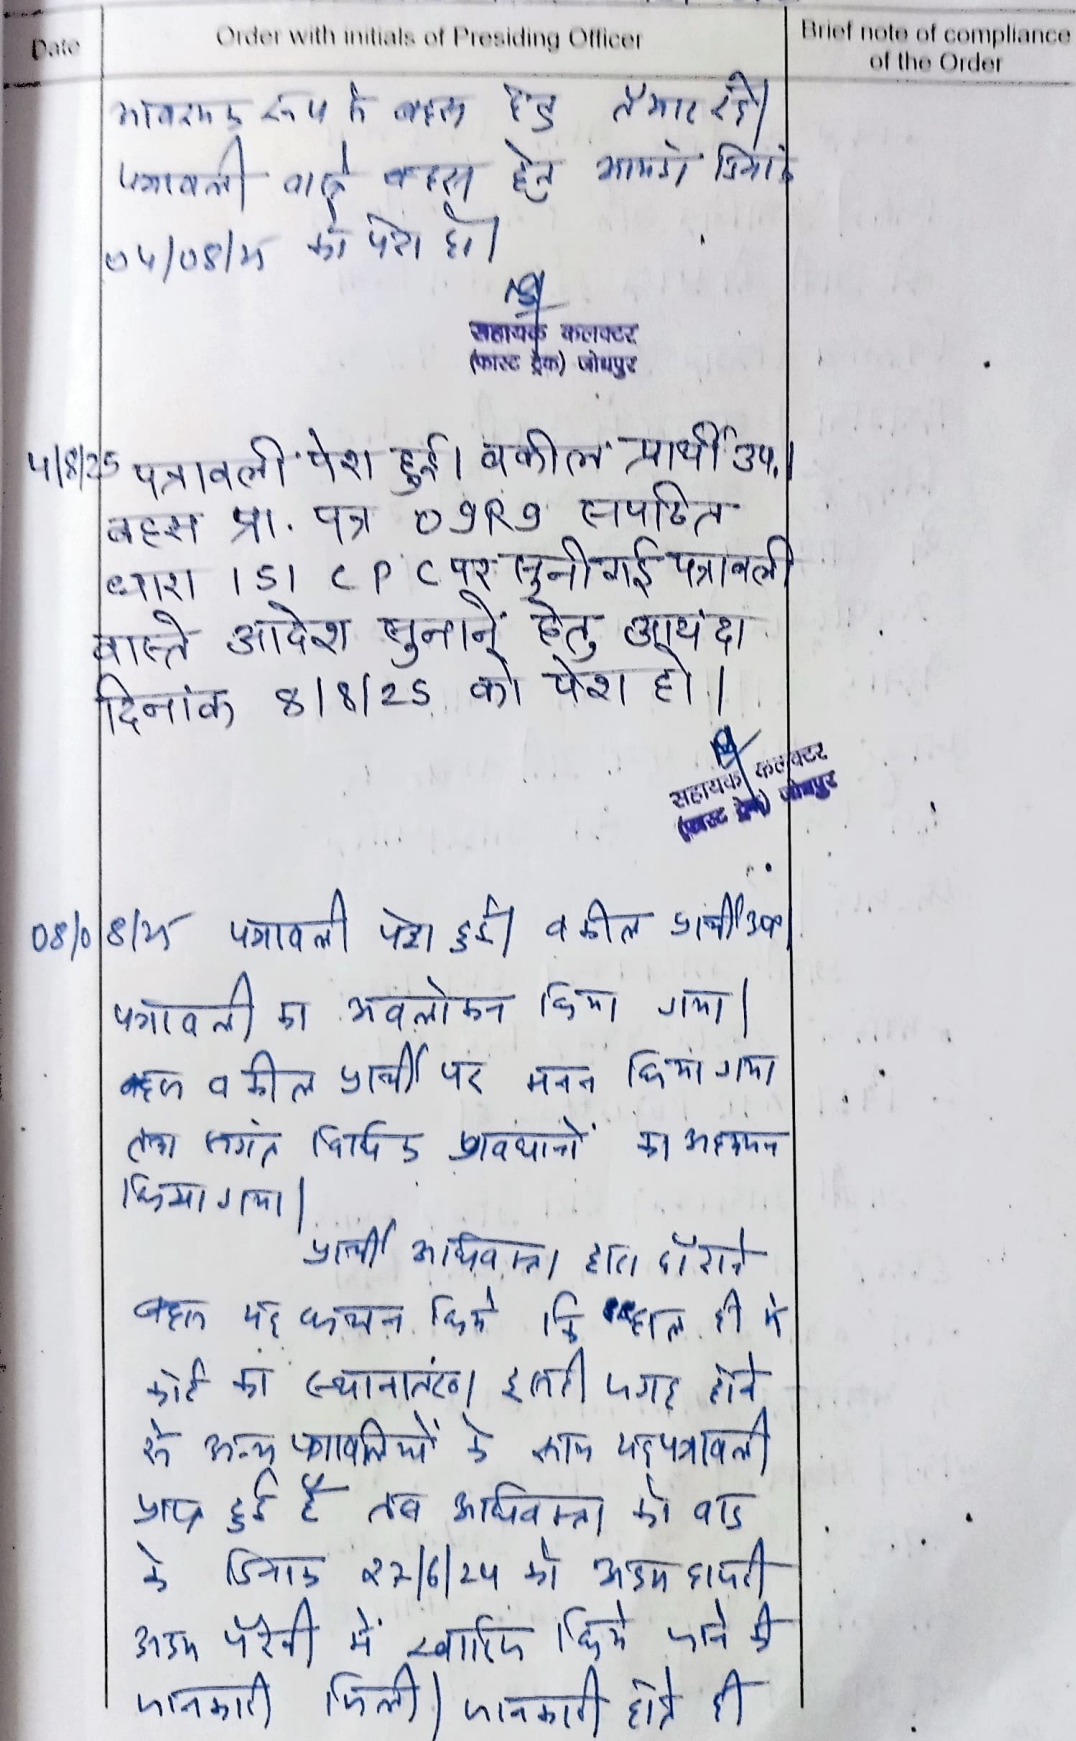 Date
Order with initials of Presiding Officer
Brief note of compliance
of the Order
आवश्यक रूप से बहस हेतु तैयार रहे।
पत्रावली वास्ते बहस हेतु आयंदा दिनांक
04/08/25 को पेश हो।
सहायक कलक्टर
(फास्ट ट्रैक) जोधपुर
4/8/25 पत्रावली पेश हुई। वकील प्रार्थी उप.।
बहस प्रा. पत्र O9R9 सपठित
धारा 151 CPC पर सुनी गई पत्रावली
वास्ते आदेश सुनाने हेतु आयंदा
दिनांक 8/8/25 को पेश हो।
सहायक कलक्टर
(फास्ट ट्रैक) जोधपुर
08/08/25 पत्रावली पेश हुई। वकील प्रार्थी उप।
पत्रावली का अवलोकन किया गया।
बहस वकील प्रार्थी पर मनन किया गया
तथा संगत विधिक प्रावधानों का अध्ययन
किया गया।
प्रार्थी अधिवक्ता द्वारा दौराने
बहस यह कथन किये कि हाल ही मे
कोर्ट का स्थानातंरण दूसरी जगह होने
से अन्य पत्रावलियों के साथ यह पत्रावली
प्राप्त हुई है तब अधिवक्ता को वाद
के दिनांक 27/6/24 को अदम हाजरी
अदम पैरवी में खारिज किये जाने की
जानकारी मिली। जानकारी होते ही